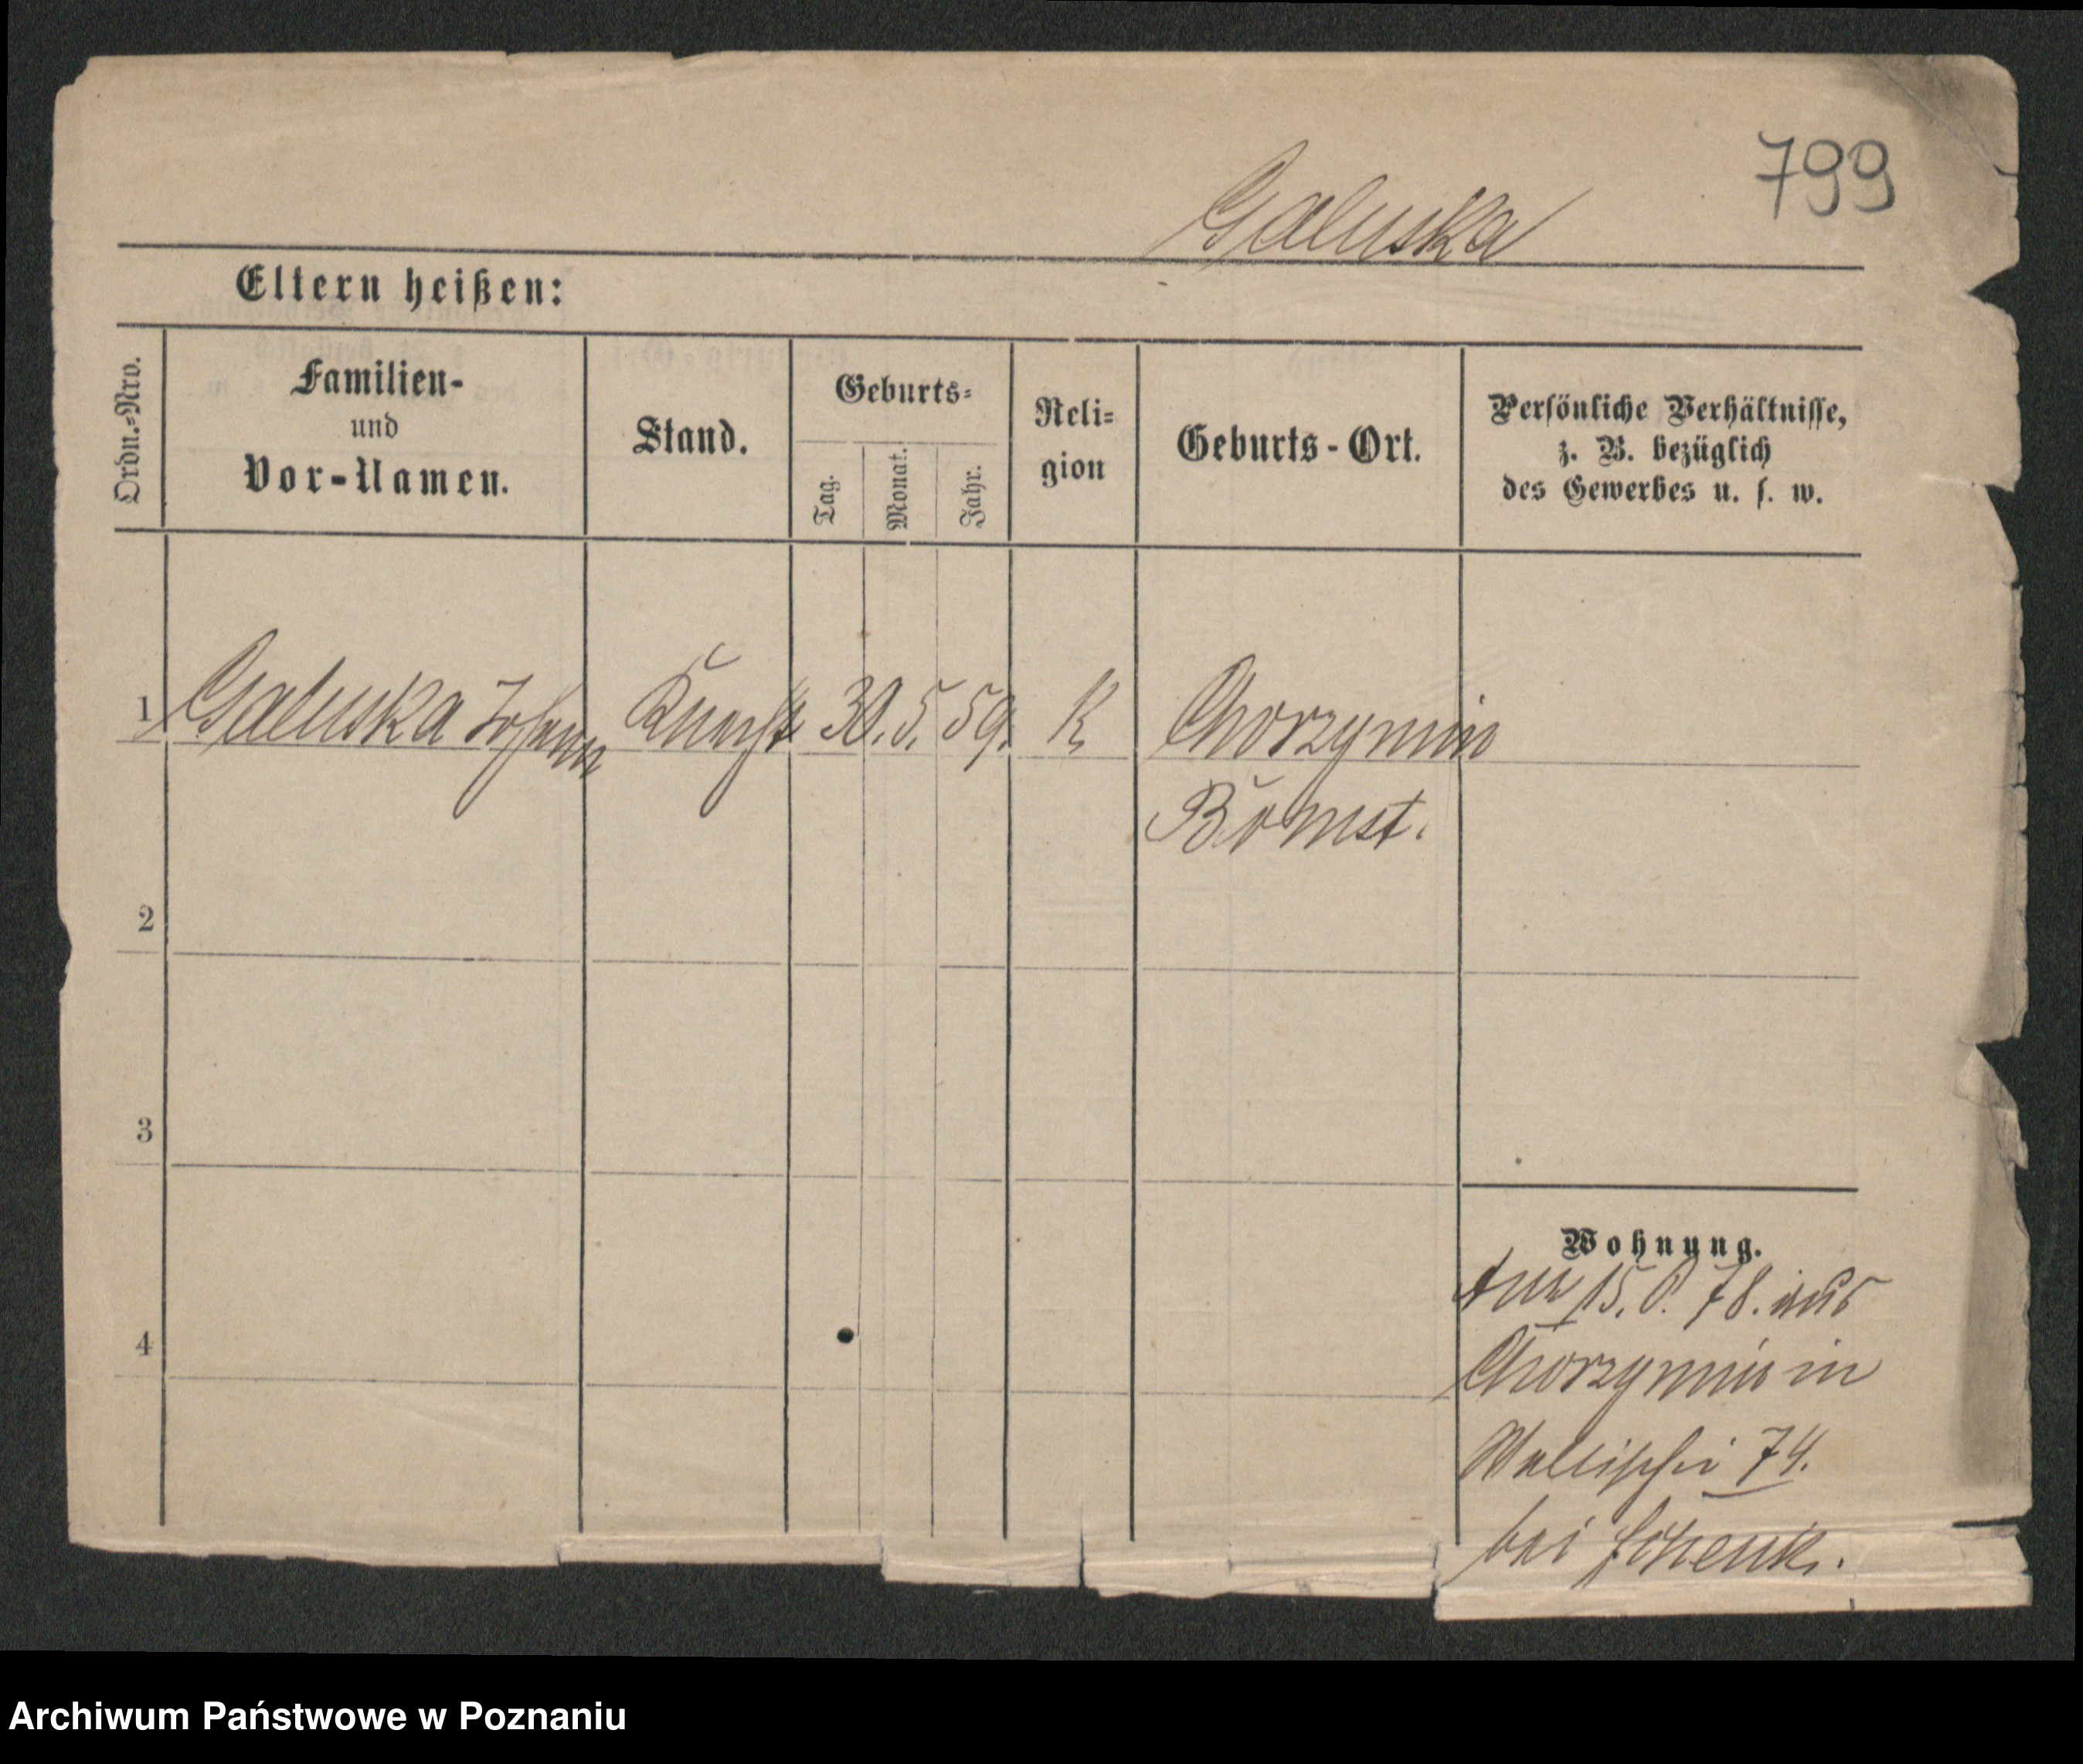 799
Galuska
Eltern heißen:
Ordn.-Nro.
Familien-
und
Vor-Namen.
Stand.
Geburts-
Tag.
Monat.
Jahr.
Reli-
gion
Geburts-Ort.
Persönliche Verhältnisse,
z. B. bezüglich
des Gewerbes u. s. w.
1 Galuska Johann Knecht 30. 5. 59. K Chorzymin
Bomst.
2
3
4
Wohnung.
Am 15. 78. aus
Chorzymin in
Wallischei 74.
bei Schenk.
Archiwum Państwowe w Poznaniu